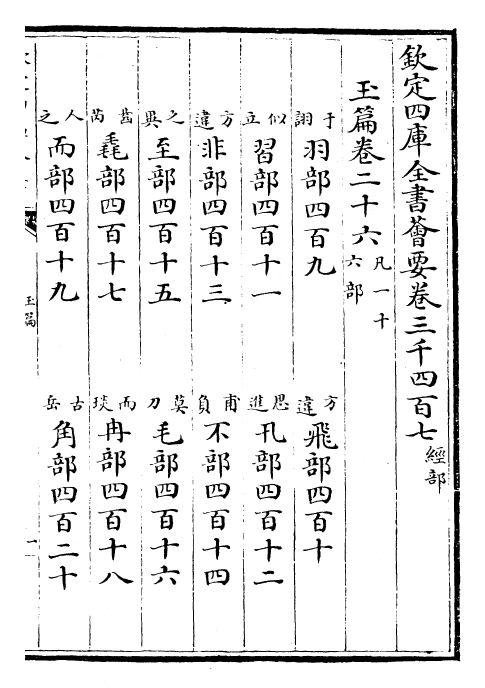 欽定四庫全書薈要卷三千四百七 經部
玉篇卷二十六 凡一十六部
于詡 羽部四百九 方違 飛部四百十
似立 習部四百十一 思進 卂部四百十二
方違 非部四百十三 甫負 不部四百十四
之異 至部四百十五 莫刀 毛部四百十六
齒芮 毳部四百十七 而琰 冉部四百十八
人之 而部四百十九 古岳 角部四百二十
玉篇 一